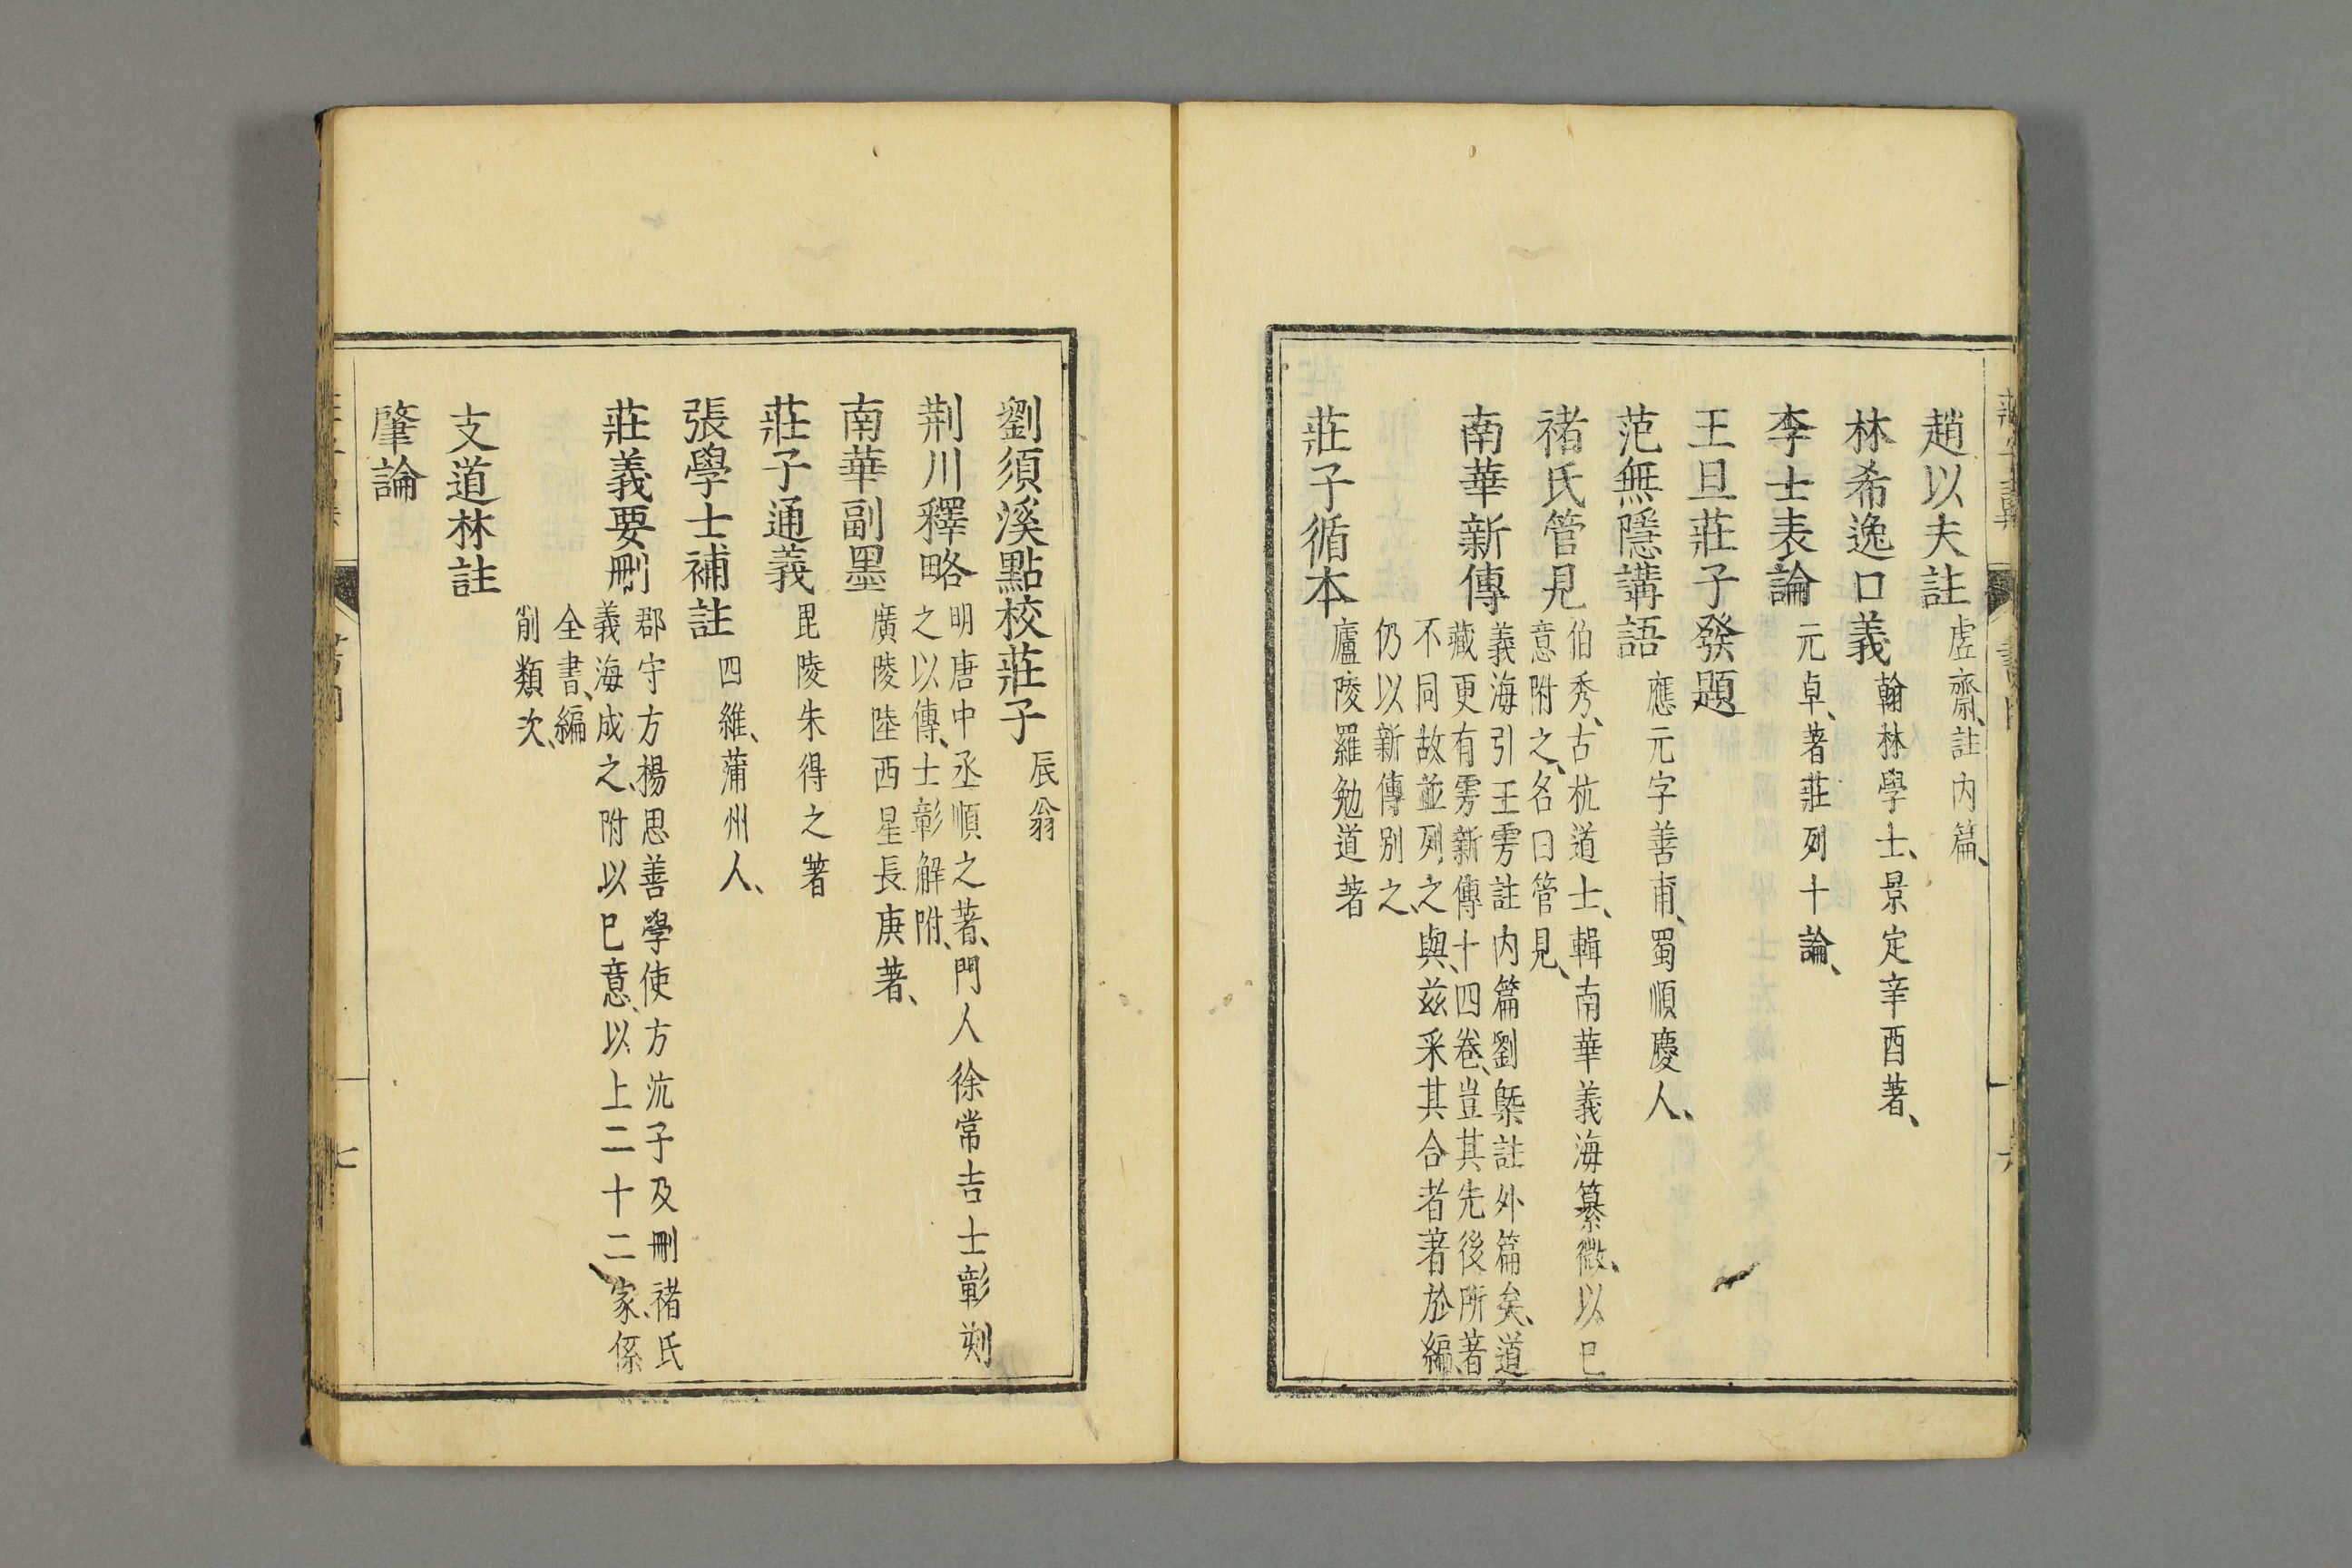 趙以夫註 虗齋、註内篇、
林希逸口義 翰林學士、景定辛酉著、
李士表論 元卓、著莊列十論、
王旦莊子發題
范無隱講語 應元字善甫、蜀順慶人、
禇氏管見 伯秀、古杭道士、輯南華義海纂微、以巳
意附之、名曰管見、
南華新傳 義海引王雱註内篇劉槩註外篇矣、道
藏更有雱新傳十四卷、豈其先後所著
不同故並列之、與、兹采其合者著於編、
仍以新傳别之、
莊子循本 廬陵羅勉道著
劉須溪點校莊子 辰翁
荆川釋略 明唐中丞順之著、門人徐常吉士彰刻
之以傳、士彰解附、
南華副墨 廣陵陸西星長庚著、
莊子通義 毘陵朱得之著
張學士補註 四維、蒲州人、
莊義要刪 郡守方楊思善學使方沆子及刪禇氏
義海成之、附以巳意、以上二十二家、係
全書、編
削類次、
支道林註
肇論